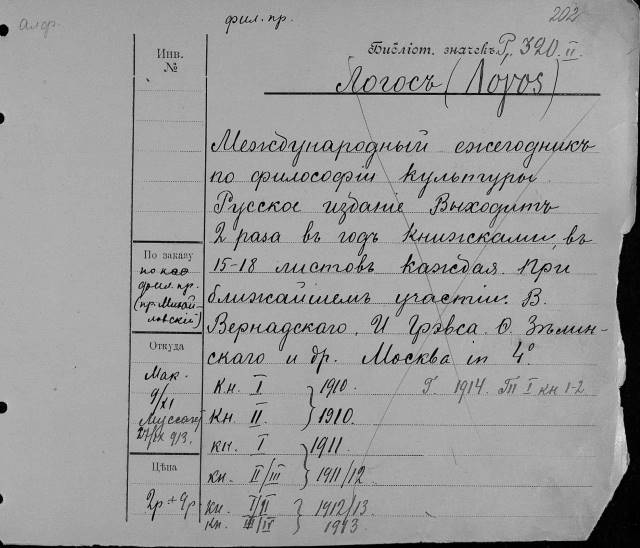 алф.
фил. пр.
202
Библіот. значекъ P, 320. II.
Логосъ (Λογος)
Инв.
№
Международный ежегодникъ
по философіи культуры.
Русское изданіе Выходитъ
2 раза въ годъ книжками, въ
15-18 листовъ каждая. При
ближайшемъ участіи. В.
Вернадскаго, И Грэвса. Ѳ. Зѣлин-
скаго и др. Москва in 4°.
По заказу
фил. пр.
(пр. Михай-
ловскій)
Откуда
Мак.
9/XI
Мусагет
27/IX 913.
Цѣна
2р + 4р.
Кн. I } 1910.
Кн. II } 1910.
кн. I } 1911
кн. II/III } 1911/12
кн. I/II } 1912/13
кн. III/IV } 1913.
Г. 1914. Т I кн 1-2